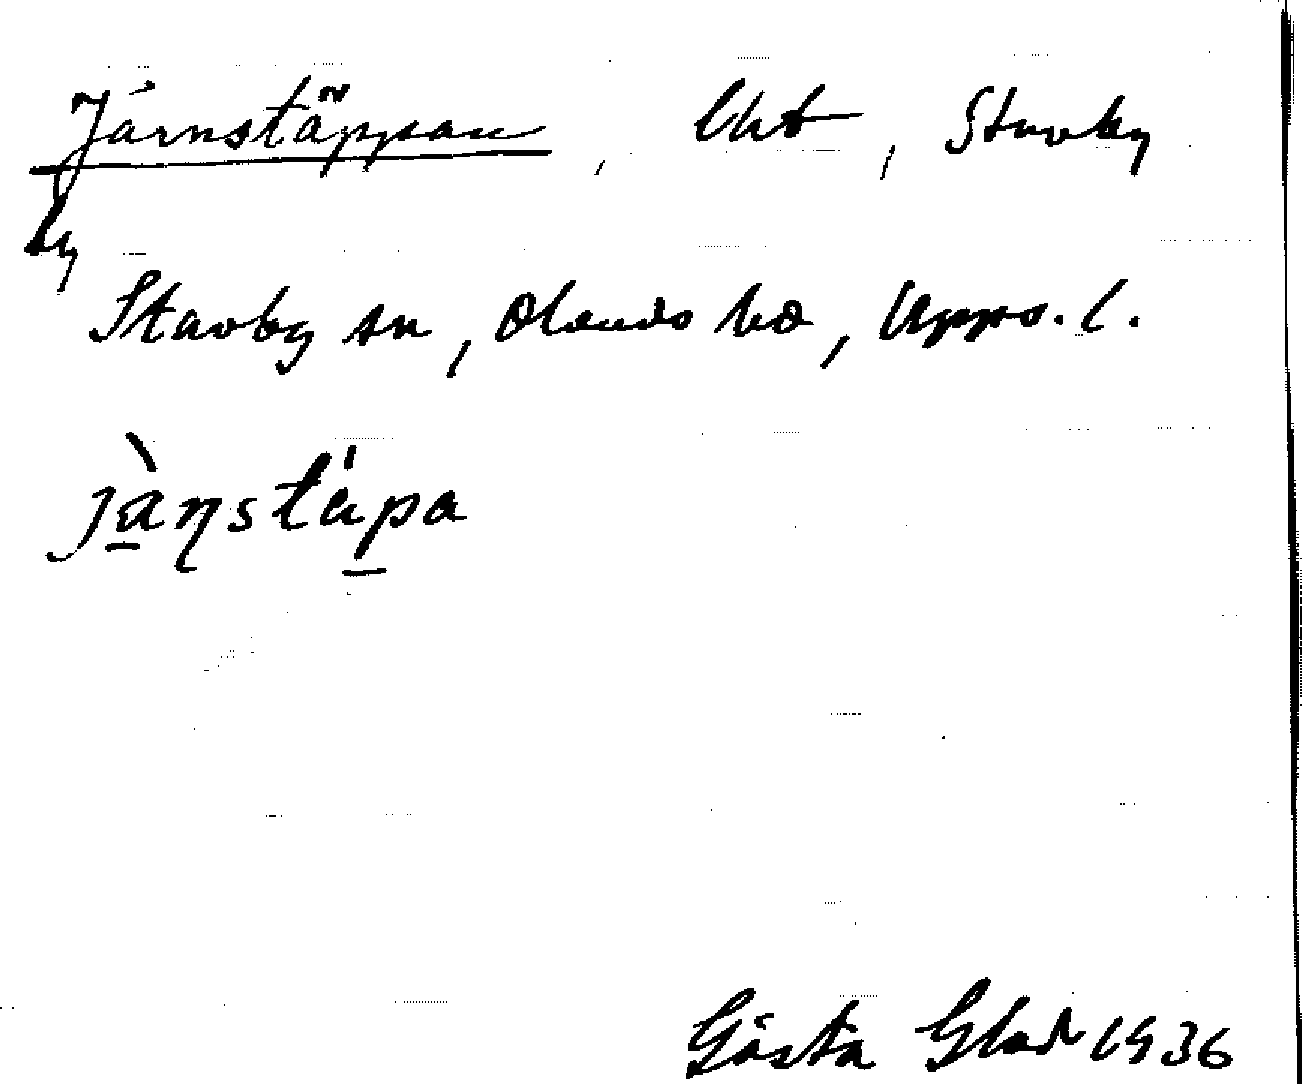 Järnstäppan, Uht, Stavby
by
Stavby sn, Olands hd, Upps. l.
jàṇstäpa
Gösta Glad 1936